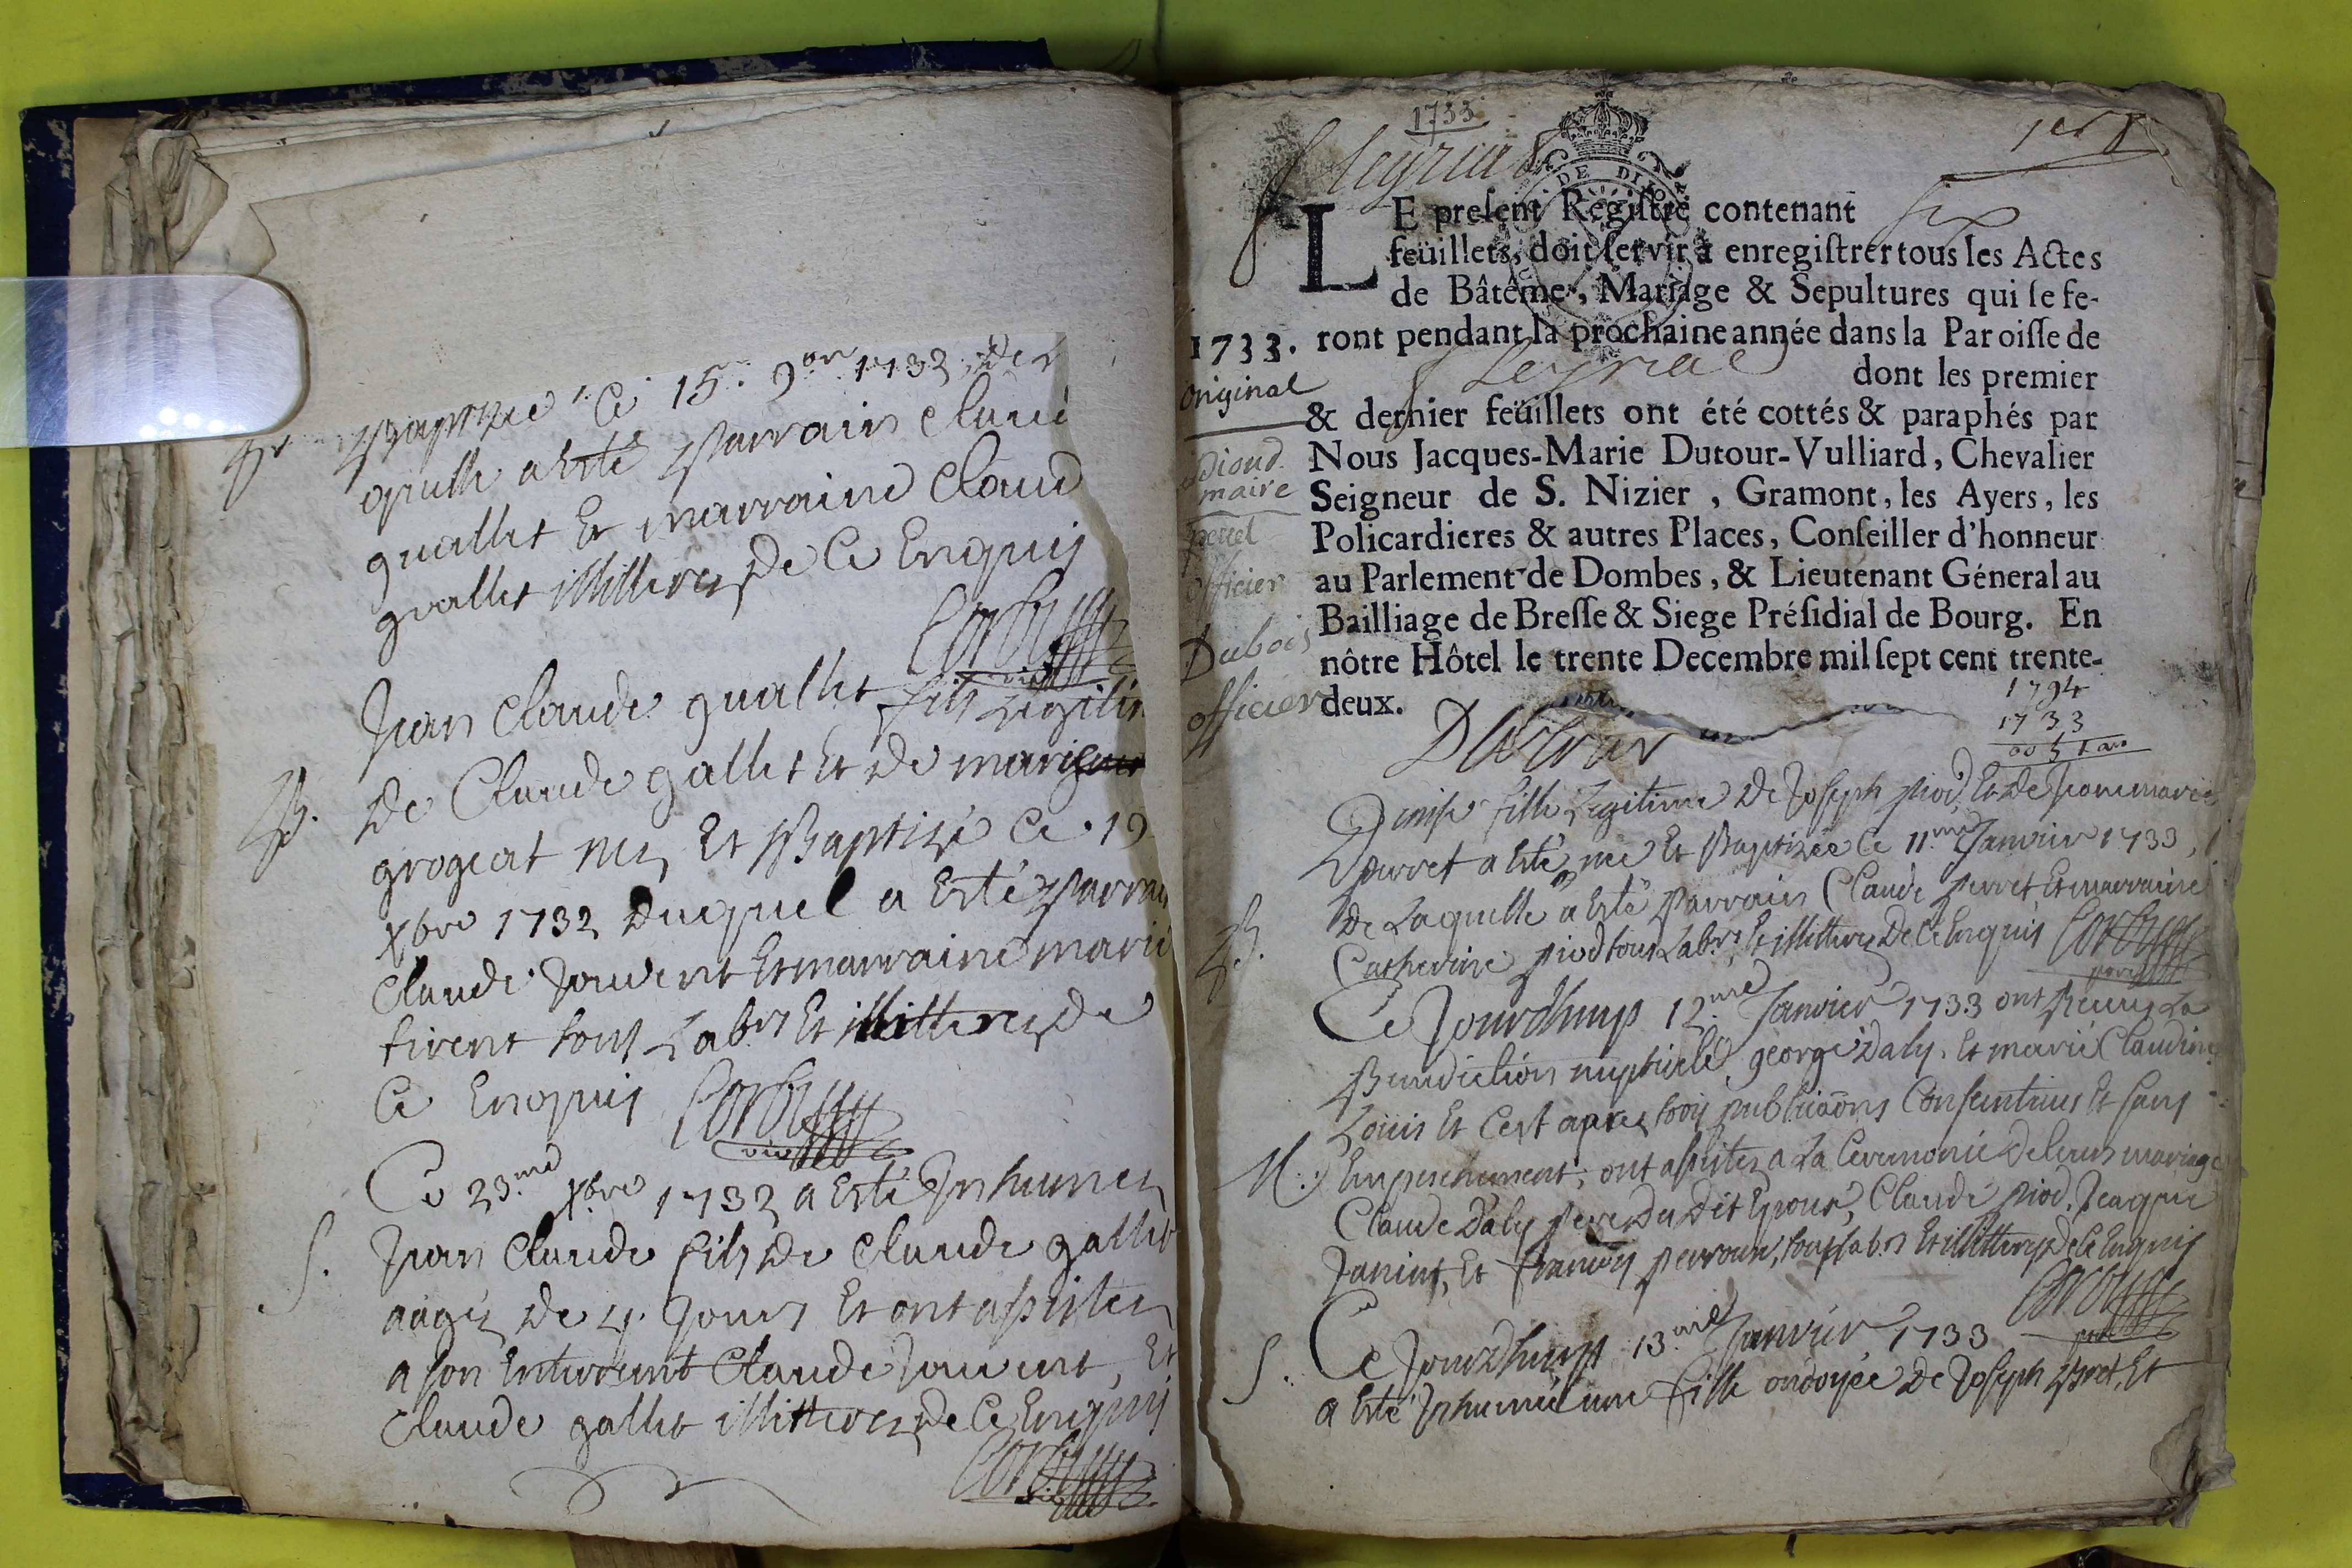 Baptizé Ce 15. 9bre 1732 de l
quelle a Esté parrain Claud
guallet Et marraine Claud
guallet illitterez de Ce Enquis
Jean Claude guallet fils Legitim
B. De Claude gallet Et de marie
grogeat né Et Baptizé Ce 19
xbre 1732 duquel a Esté parrai
Claude Jouvent Et marraine marie
tirent tous Labrs Et illitterez de
Ce Enquis
vic
Ce 23.me xbre 1732 a Esté Inhumez
S. Jean Claude fils de Claude gallet
aagez de 4. Jours Et ont assistez
a son Enterrement Claude Jouvent, Et
Claude gallet illitterez de Ce Enquis
1733
Leyriat
1er
LE present Registre contenant six
feüillets, doit servir à enregistrer tous les Actes
de Bâtême, Mariage & Sepultures qui se fe-
1733. ront pendant la prochaine année dans la Paroisse de
original Leyriat dont les premier
& dernier feüillets ont été cottés & paraphés par
Nous Jacques-Marie Dutour-Vulliard, Chevalier
maire Seigneur de S. Nizier, Gramont, les Ayers, les
Policardieres & autres Places, Conseiller d'honneur
officier au Parlement de Dombes, & Lieutenant Géneral au
Bailliage de Bresse & Siege Présidial de Bourg. En
Dubois nôtre Hôtel le trente Decembre mil sept cent trente-
officier deux.
Dutour
1794
1733
Denise fille Legitime de Joseph piod, Et de Jeanne marie
perret a Esté née Et Baptizée Ce 11.me Janvier 1733,
De Laquelle a Esté parrain Claude perret Et marraine
B. Catherine piod tous Labrs Et illitterez de Ce Enquis
Ce Jourdhuy 12.me Janvier 1733 ont Receu La
Benediction nuptiale george Daly, Et marie Claudine
Louis Et C'est apres trois publicaons Consentives Et sans
M. Empeschement; ont assistez a La Ceremonie de leurs mariage
Claude Daly pere du dit Epoux, Claude piod, Jeaque
Janint, Et françois perroux, tous Labrs Et illitterez de Ce Enquis
Ce Jourdhuy 13.me Janvier 1733
S. a Esté Inhumée une fille ondoyée de Joseph Et